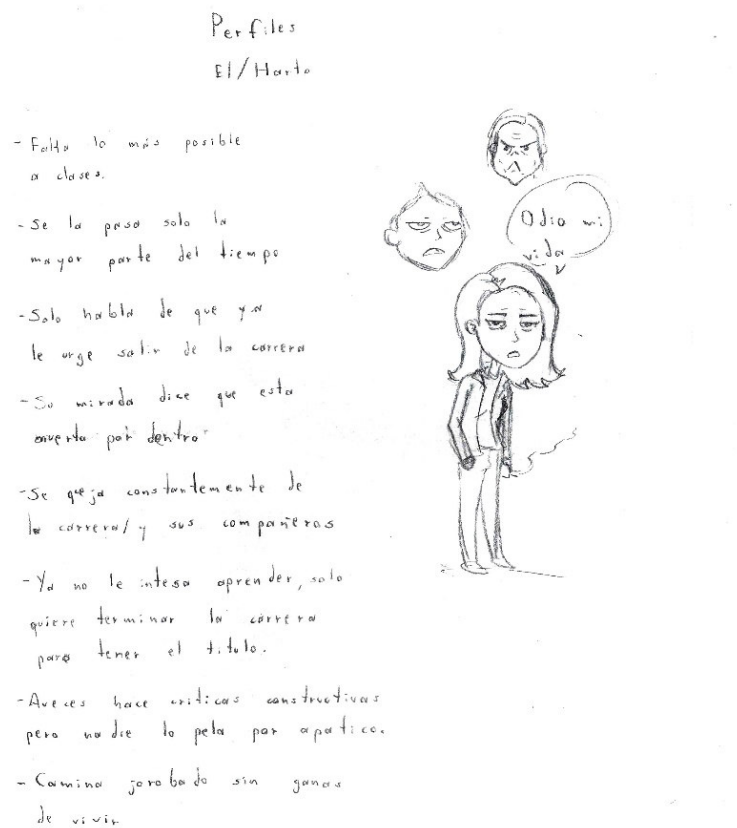 Perfiles
El/Harto
- Falta lo más posible
a clases.
- Se la pasa solo la
mayor parte del tiempo
- Solo habla de que ya
le urge salir de la carrera
- Su mirada dice que esta
muerta por dentro
- Se queja constantemente de
la carrera/y sus compañeros
- Ya no le intesa aprender, solo
quiere terminar la carrera
para tener el titulo.
- Aveces hace criticas constructivas
pero nadie lo pela por apatico.
- Camina jorobado sin ganas
de vivir
Odio mi
vida